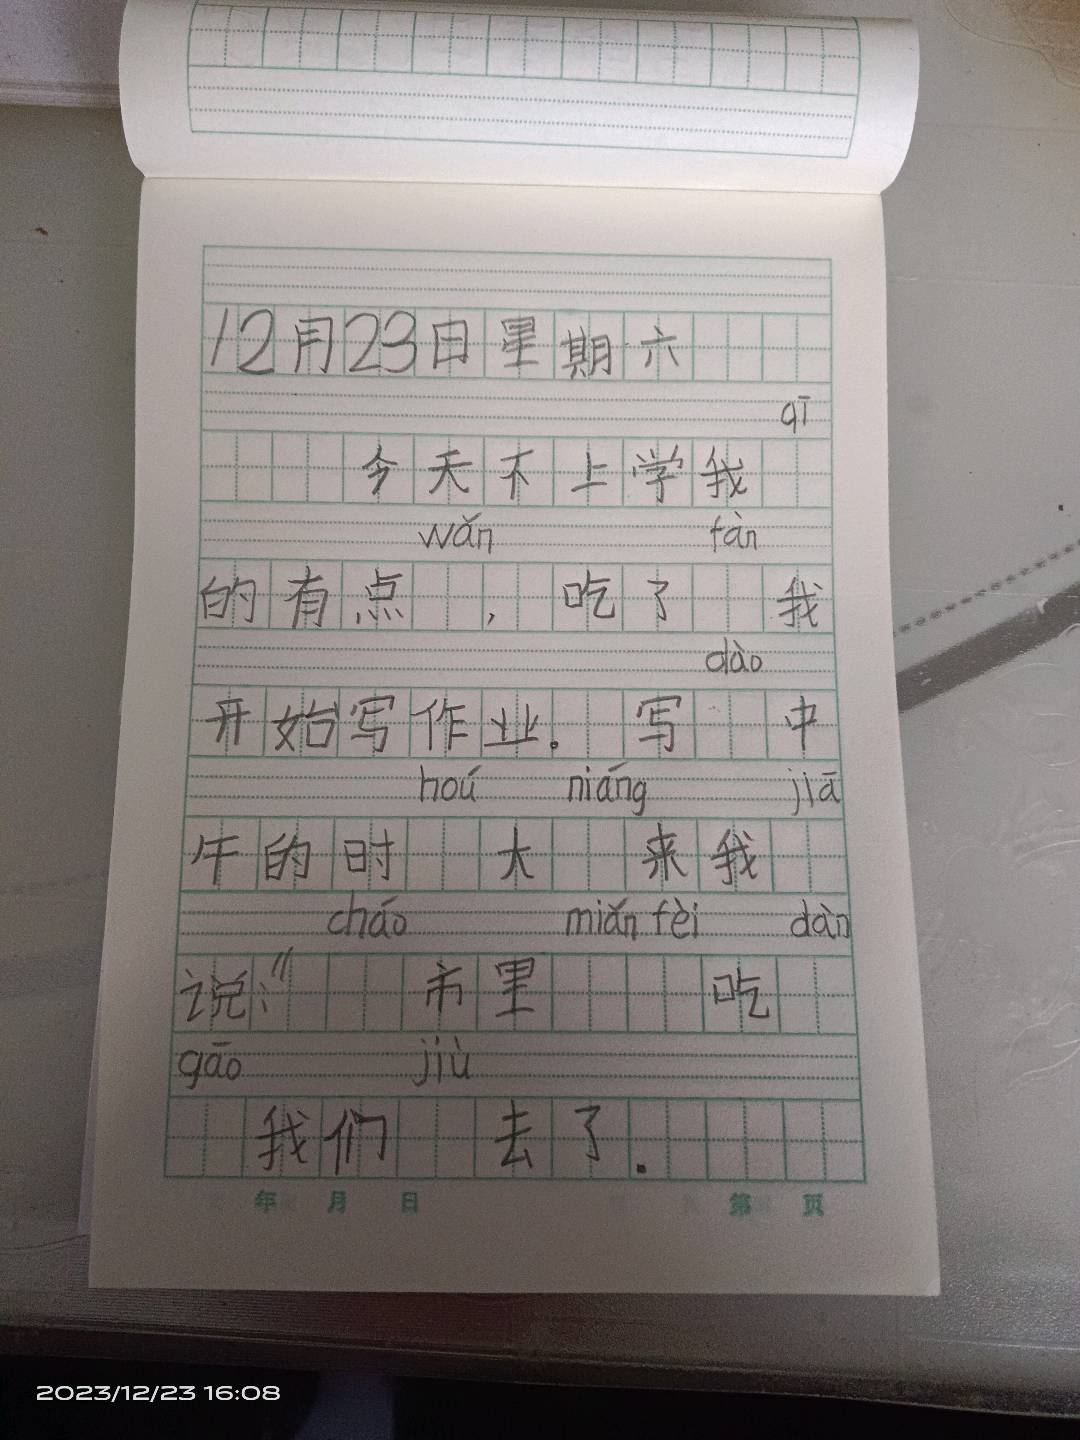 12月23日星期六
qī
今天不上学我
wǎn fàn
的有点 , 吃了 我
dào
开始写作业。 写 中
hoú niáng jiā
午的时 大 来我
cháo miǎn fèi dàn
说:“ 市里 吃
gāo jiù
我们 去了.
年 月 日 第 页
2023/12/23 16:08